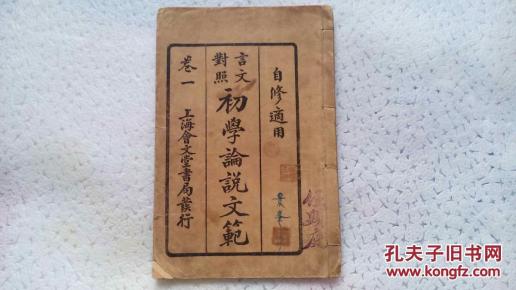 自修適用
言文對照
初學論說文範
卷一
上海會文堂書局發行
孔夫子旧书网
www.kongfz.com